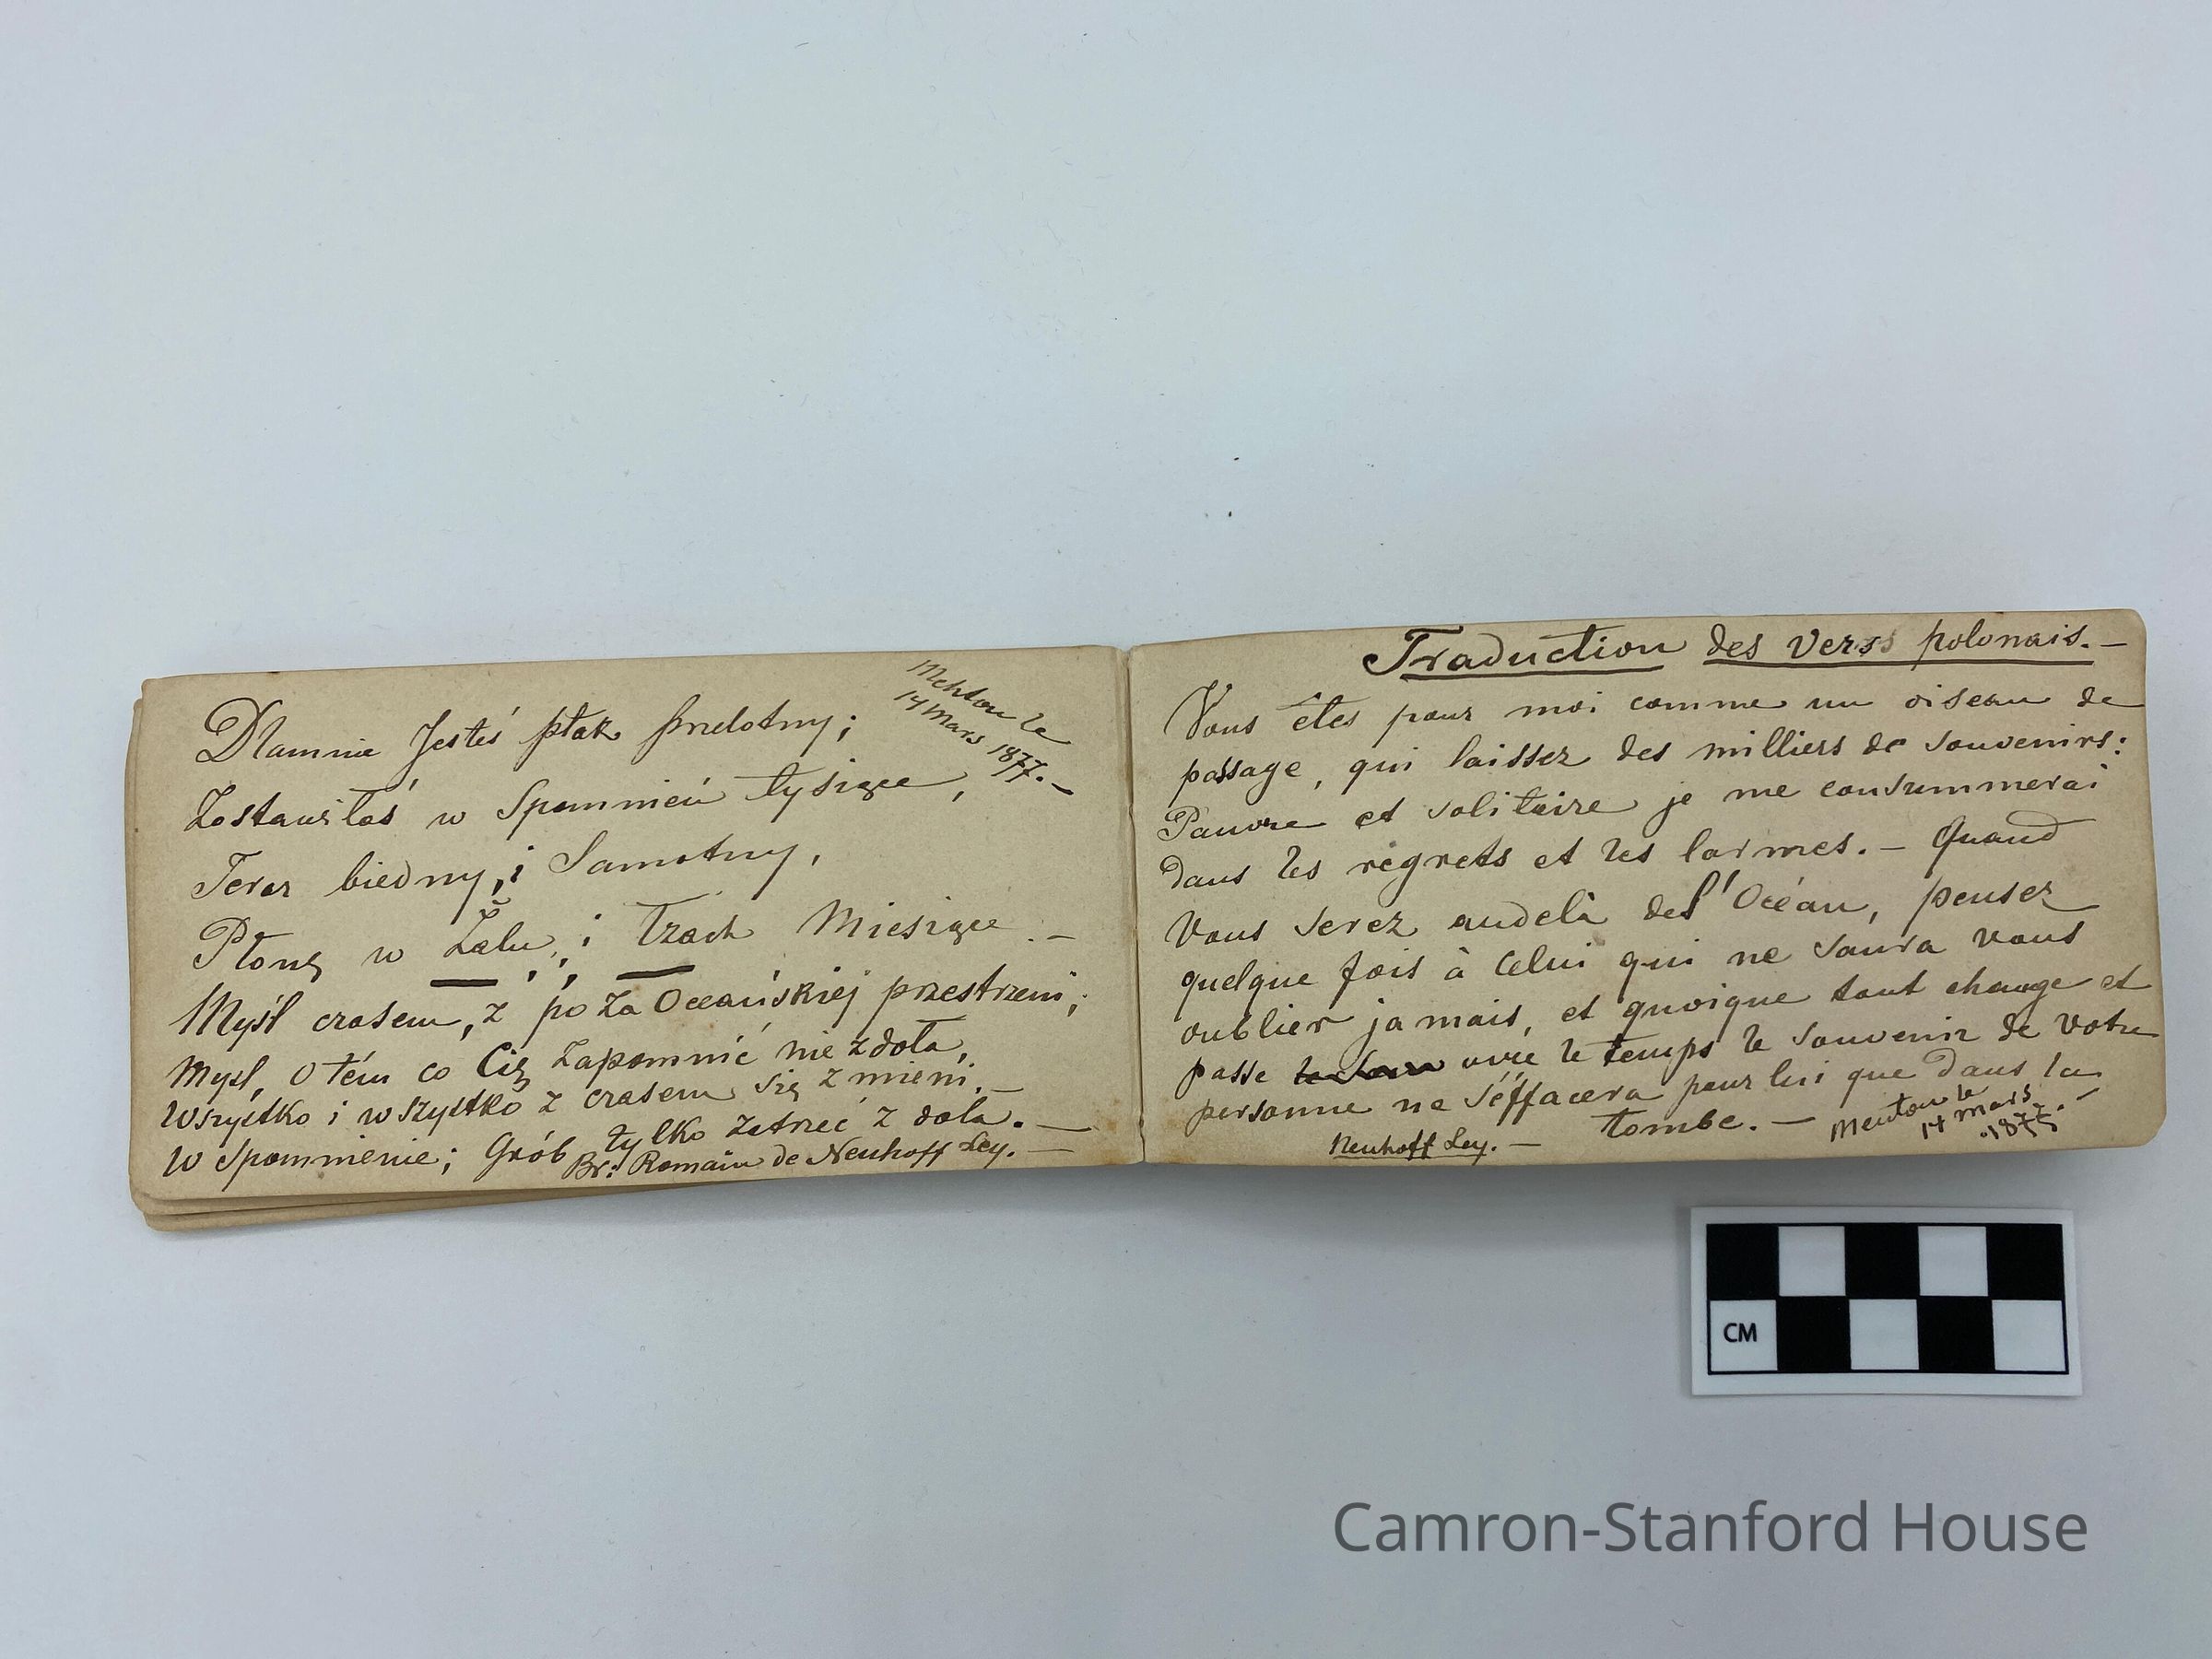 Menton le
14 Mars 1877. —
Dlamnie Jesteś ptak przelotny;
Zostawiłaś w Spomnień tysiące,
Teraz biedny, i Samotny,
Płonę w Żalu, i Łzach Miesiące. —
Myśl czasem, z po za Oceańskiéj przestrzeni;
Myśl, O tém co Cię Zapomnić nie zdoła,
Wszystko i wszystko z czasem się zmieni. —
W Spomnienie; Grób tylko Zetrzeć zdoła. —
Br: Romain de Neuhoff Ley. —
Traduction des Verss polonais. —
Vous êtes pour moi comme un oiseau de
passage, qui laissez des milliers de souvenirs:
Pauvre et solitaire je me consummerai
dans les régrets et les larmes. — Quand
Vous serez audelà de l'Océan, pensez
quelque fois à Celui qui ne saura vous
oublier jamais, et quoique tout change et
passe le Sou avec le temps le souvenir de votre
personne ne s'éffacera pour lui que dans la
tombe. —
Menton le
14 mars
1877. —
Neuhoff Ley. —
CM
Camron-Stanford House